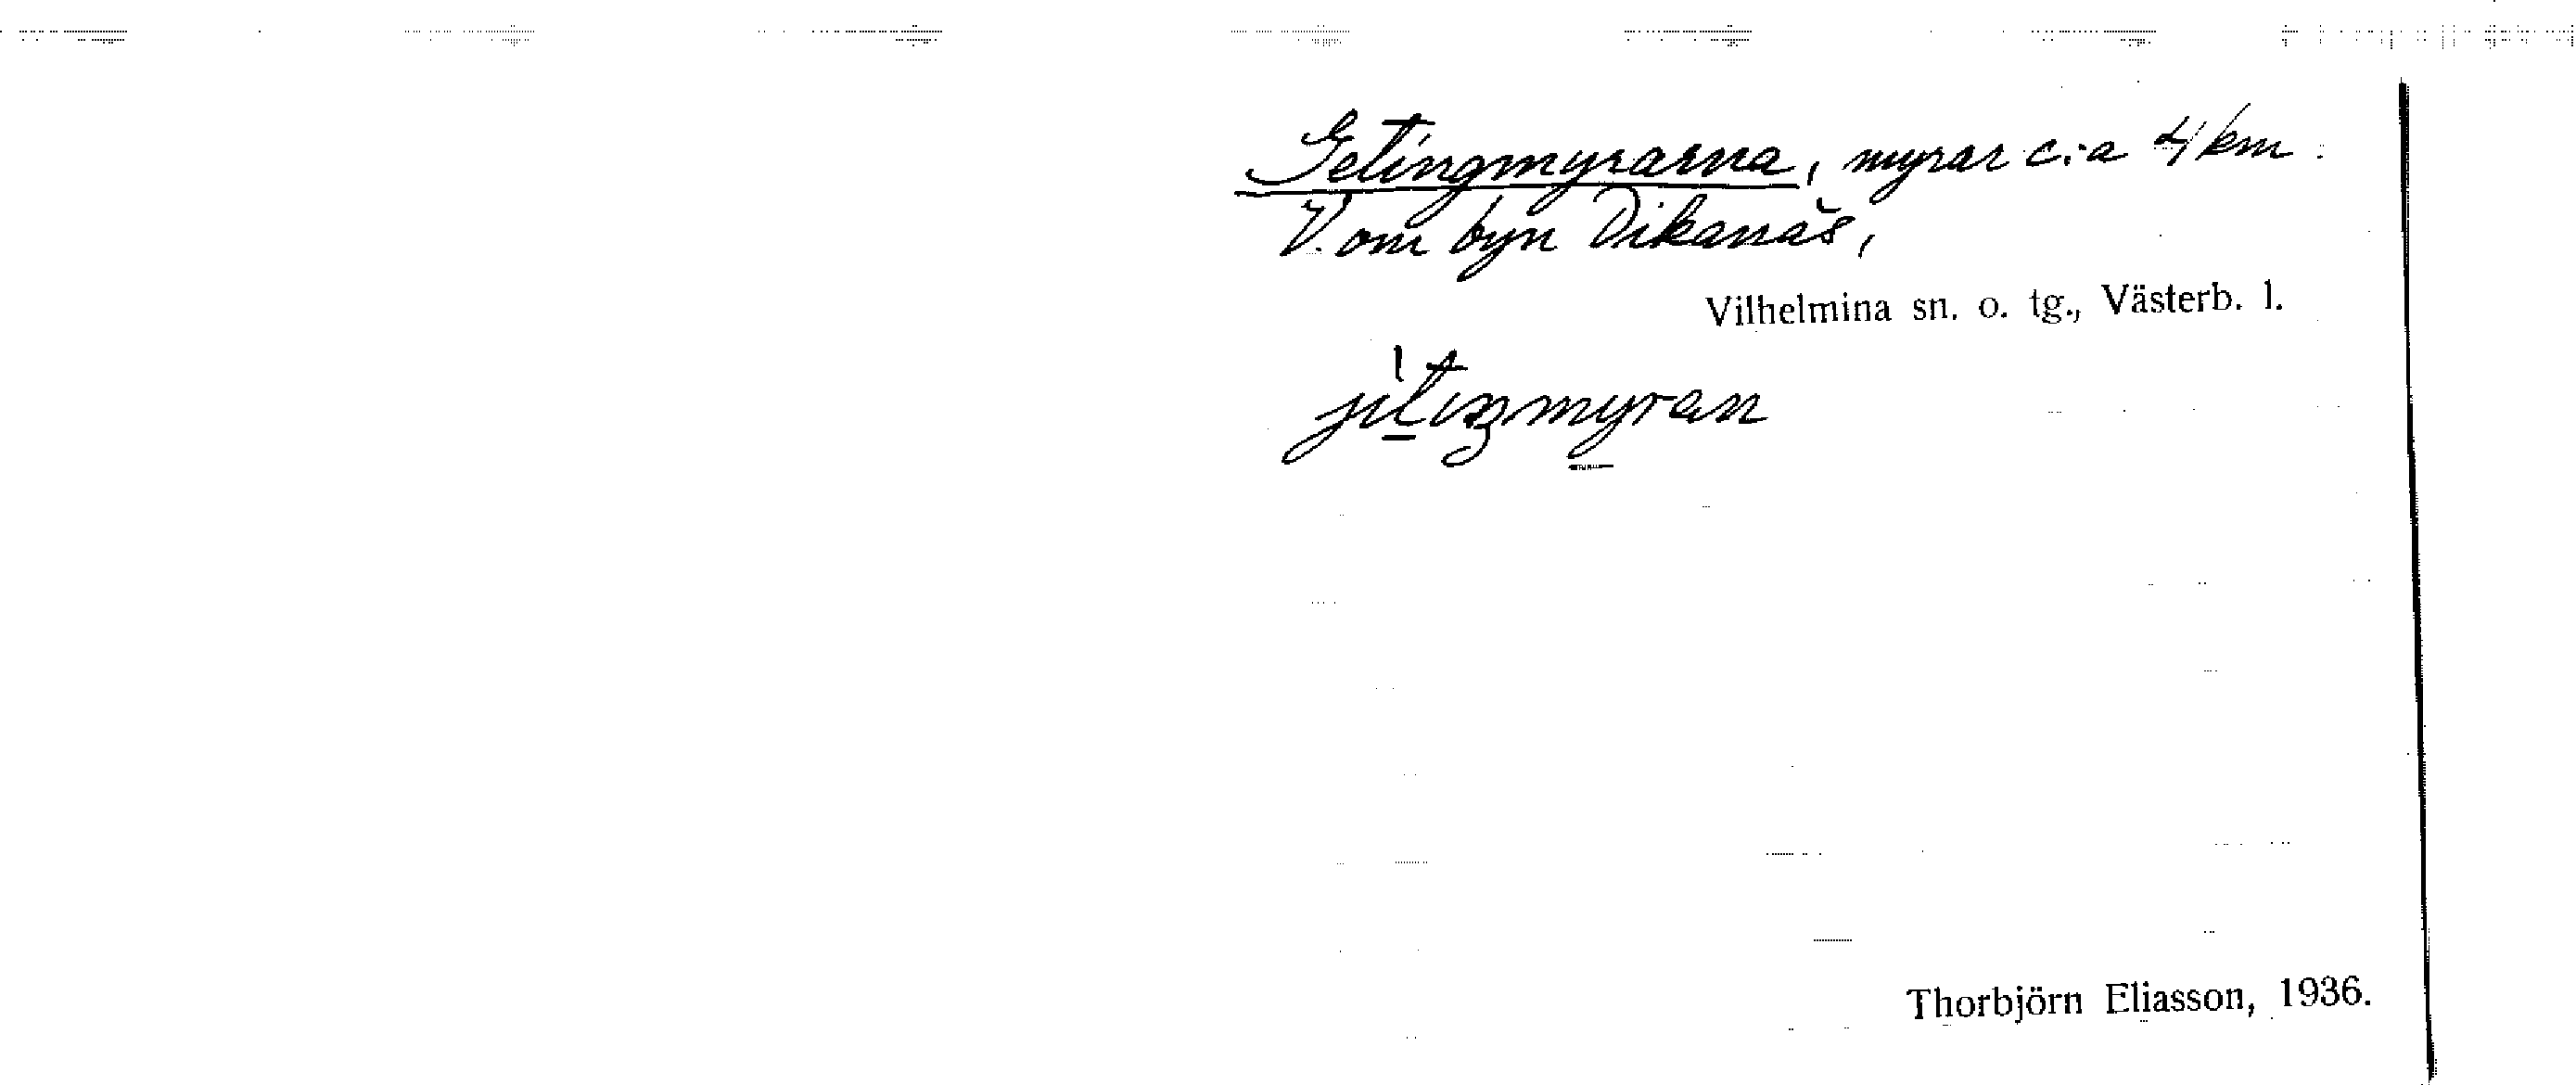 Getingmyrarna, myrar c:a 4 km.
V. om byn Dikanäs,
Vilhelmina sn. o. tg., Västerb. l.
jìtiŋmyran
Thorbjörn Eliasson, 1936.